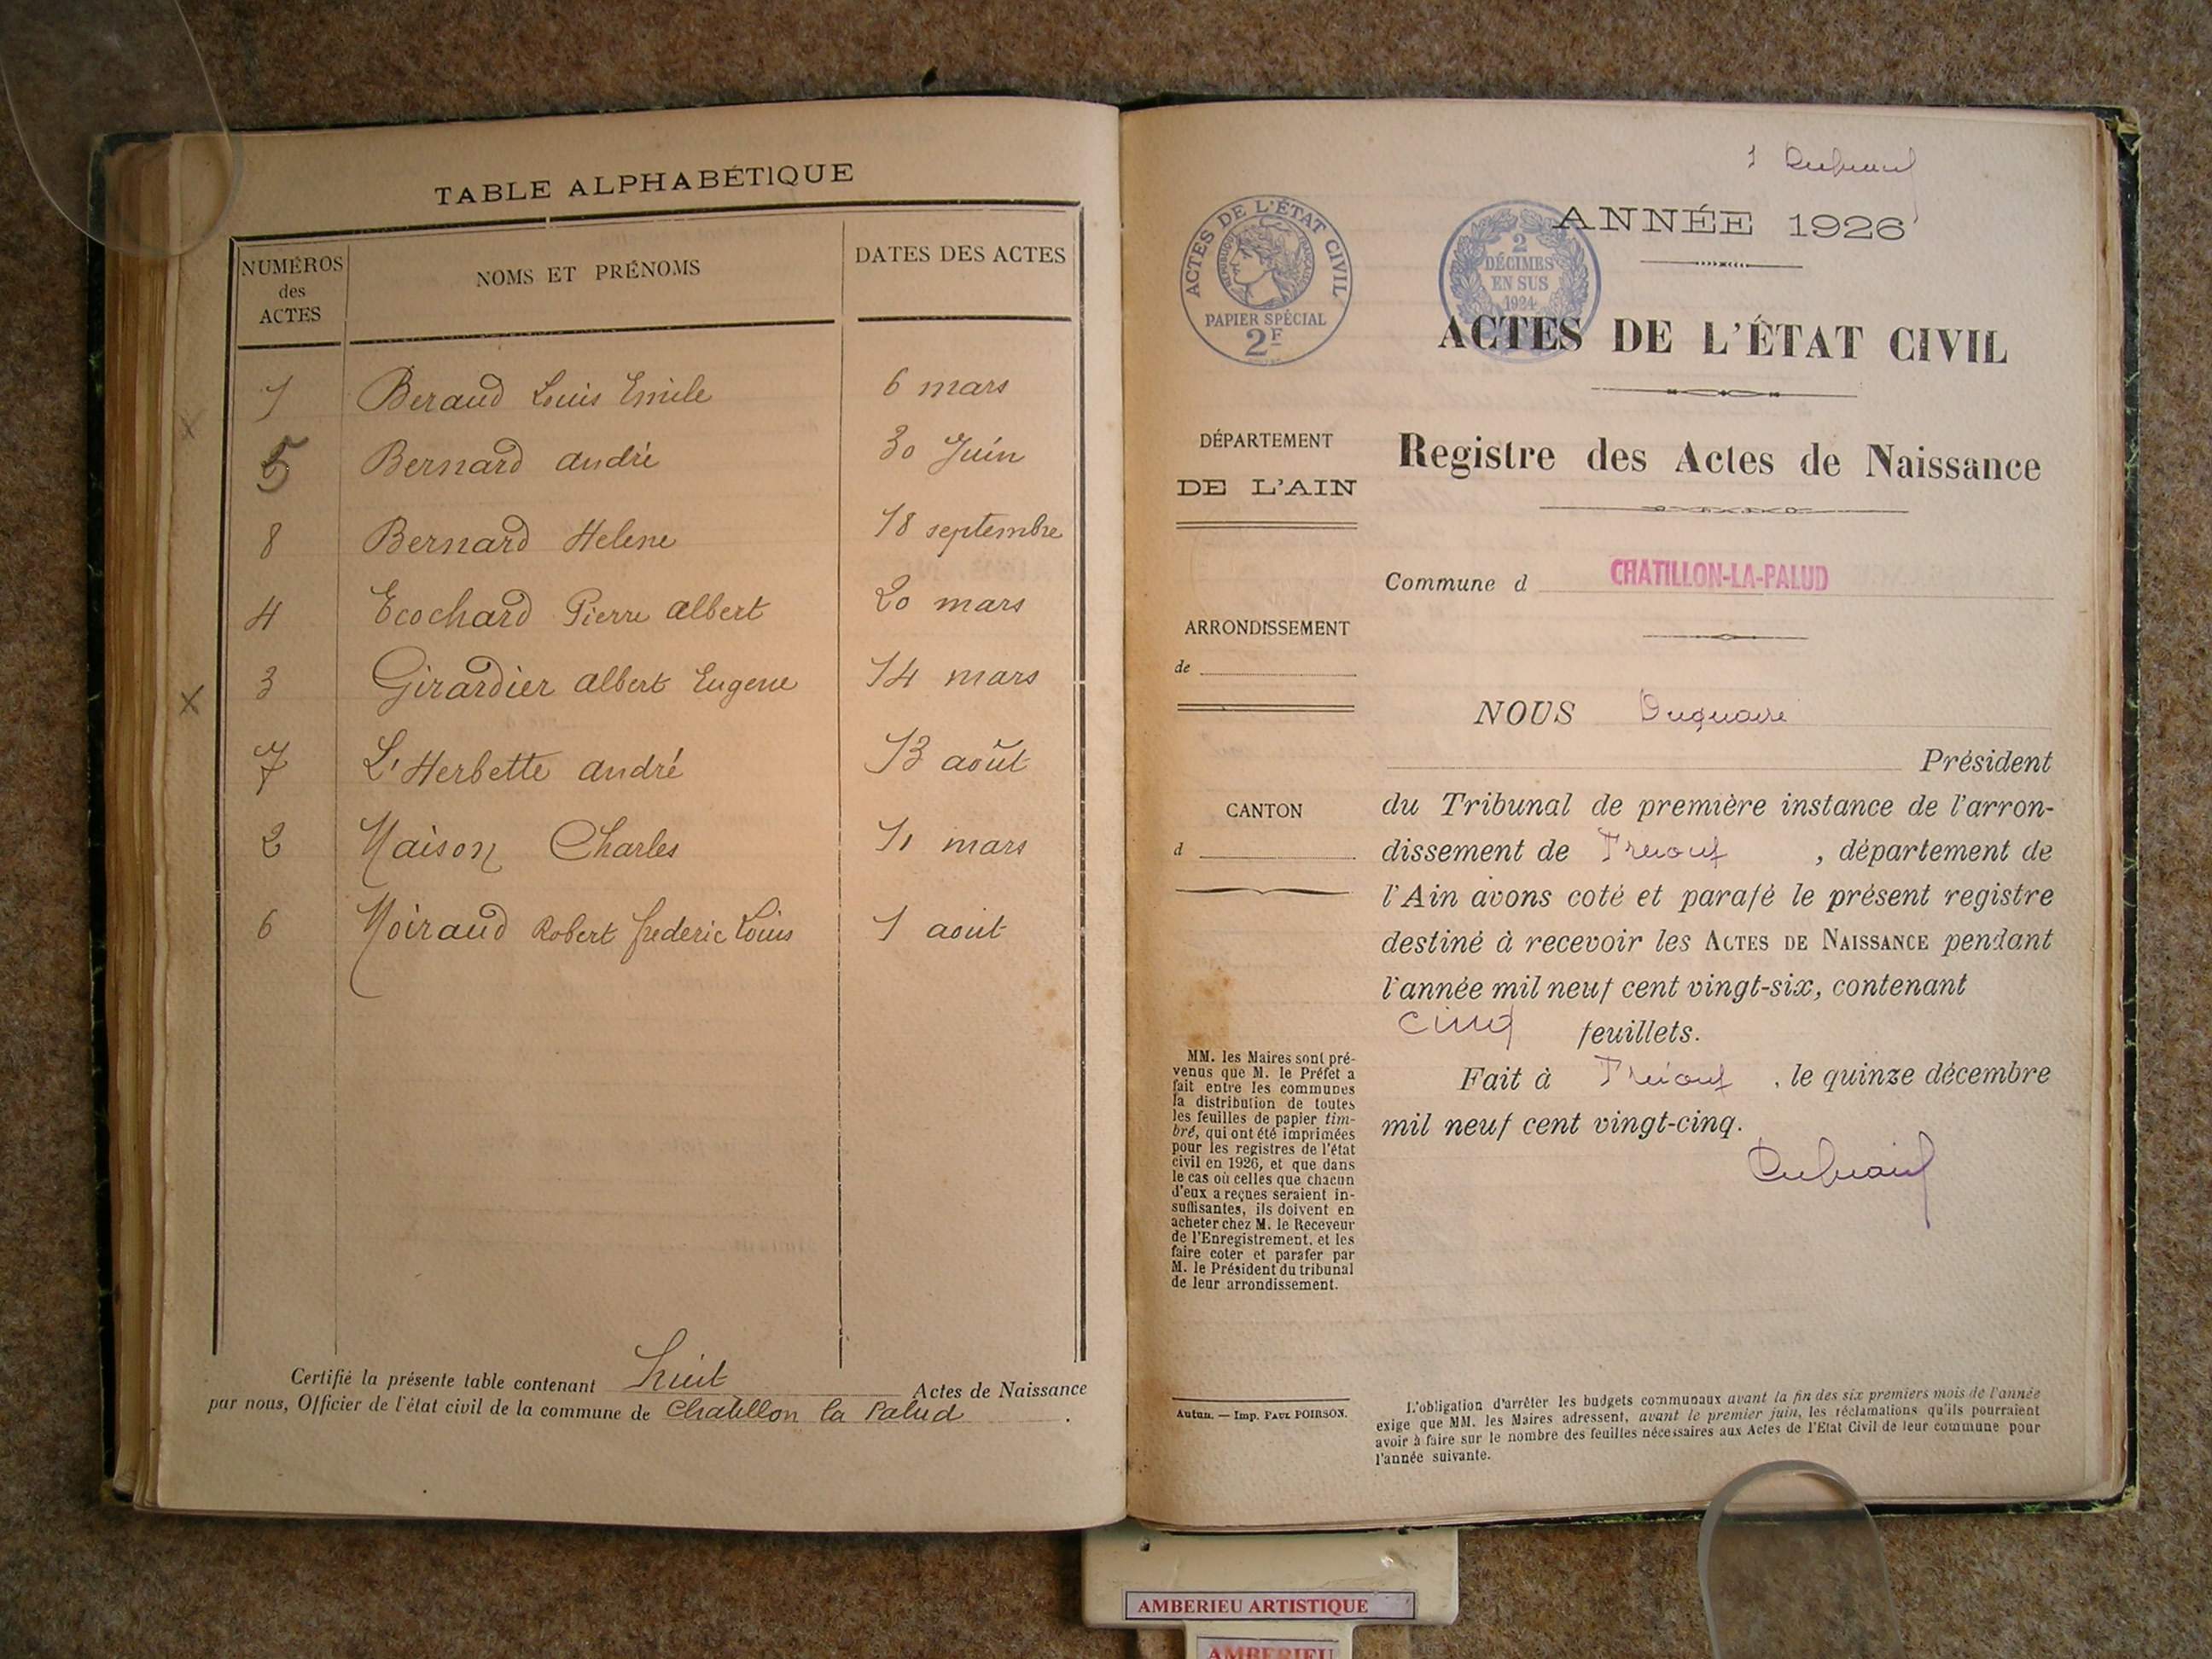 TABLE ALPHABÉTIQUE
NUMÉROS des ACTES
NOMS ET PRÉNOMS
DATES DES ACTES
1 Beraud Louis Emile 6 mars
5 Bernard andré 30 Juin
8 Bernard Helene 18 septembre
4 Ecochard Pierre albert 20 mars
3 Girardier albert Eugene 14 mars
7 L'Herbette andré 13 août
2 Maison Charles 11 mars
6 Moiraud Robert frederic Louis 1 aout
Certifié la présente table contenant huit Actes de Naissance
par nous, Officier de l'état civil de la commune de Chatillon la Palud.
1
ACTES DE L'ÉTAT CIVIL
RÉPUBLIQUE FRANÇAISE
PAPIER SPÉCIAL
2F
2
DÉCIMES
EN SUS
1924
ANNÉE 1926
ACTES DE L'ÉTAT CIVIL
Registre des Actes de Naissance
DÉPARTEMENT
DE L'AIN
ARRONDISSEMENT
de
CANTON
d
MM. les Maires sont pré-
venus que M. le Préfet a
fait entre les communes
la distribution de toutes
les feuilles de papier tim-
bré, qui ont été imprimées
pour les registres de l'état
civil en 1926, et que dans
le cas où celles que chacun
d'eux a reçues seraient in-
suffisantes, ils doivent en
acheter chez M. le Receveur
de l'Enregistrement, et les
faire coter et parafer par
M. le Président du tribunal
de leur arrondissement.
Autun. — Imp. PAUL POIRSON.
Commune d CHATILLON-LA-PALUD
NOUS
Président
du Tribunal de première instance de l'arron-
dissement de Trévoux, département de
l'Ain avons coté et parafé le présent registre
destiné à recevoir les ACTES DE NAISSANCE pendant
l'année mil neuf cent vingt-six, contenant
cinq feuillets.
Fait à Trévoux, le quinze décembre
mil neuf cent vingt-cinq.
L'obligation d'arrêter les budgets communaux avant la fin des six premiers mois de l'année
exige que MM. les Maires adressent, avant le premier juin, les réclamations qu'ils pourraient
avoir à faire sur le nombre des feuilles nécessaires aux Actes de l'Etat Civil de leur commune pour
l'année suivante.
AMBERIEU ARTISTIQUE
AMBERIEU